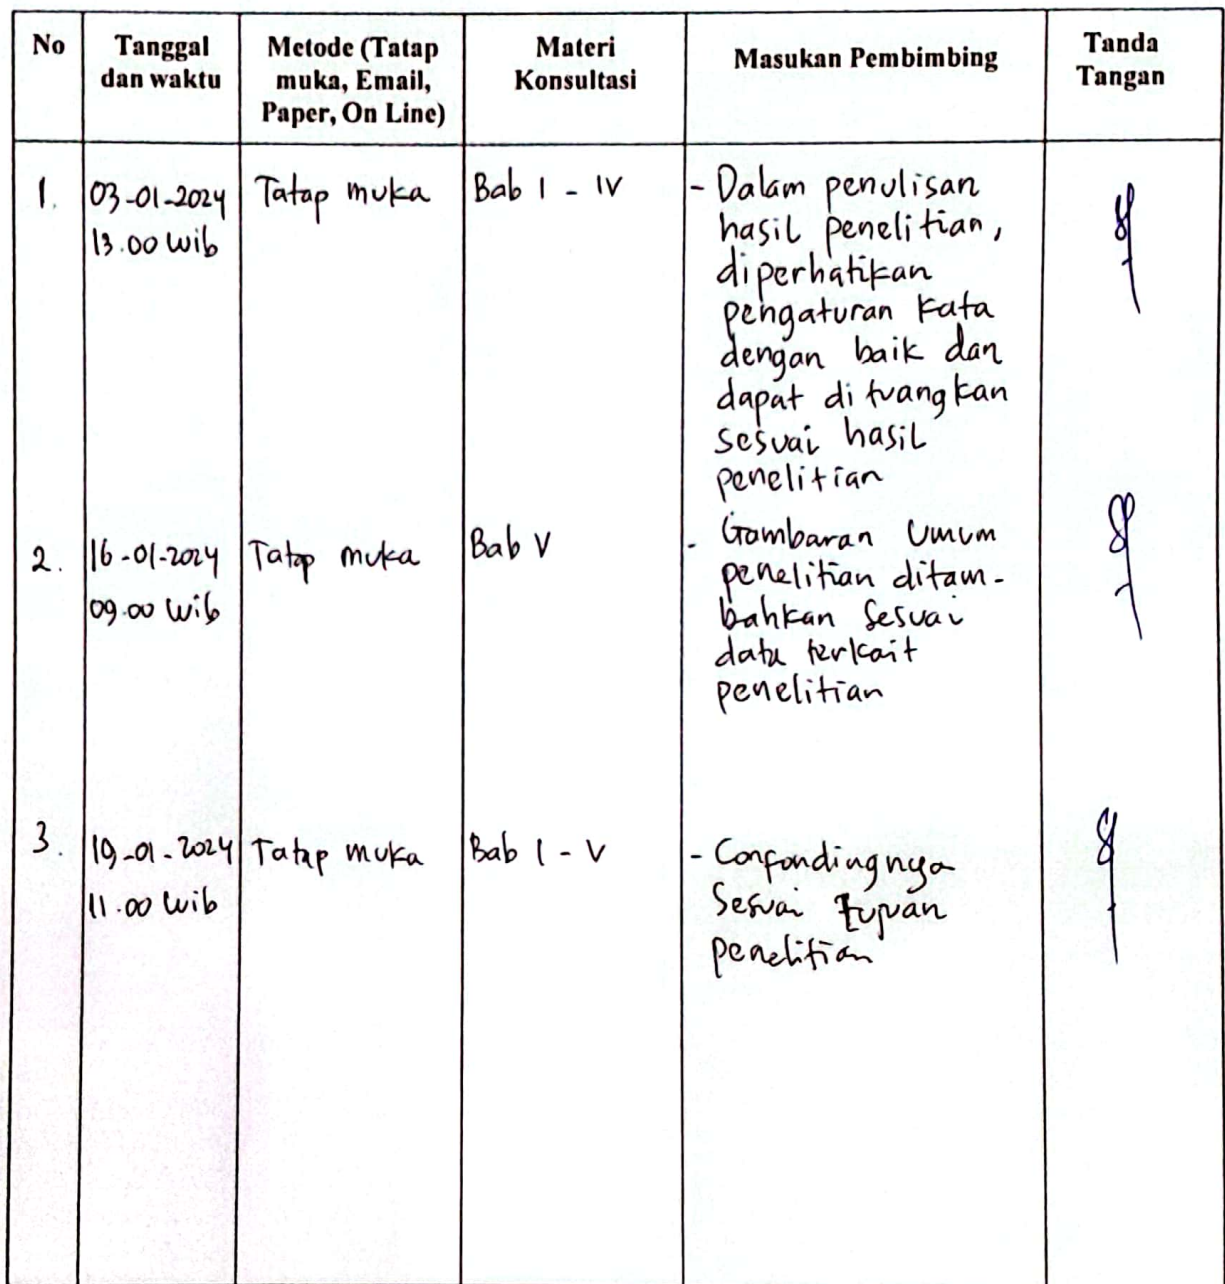 No
Tanggal
dan waktu
Metode (Tatap
muka, Email,
Paper, On Line)
Materi
Konsultasi
Masukan Pembimbing
Tanda
Tangan
1.
03-01-2024
13.00 wib
Tatap muka
Bab I - IV
- Dalam penulisan
hasil penelitian,
diperhatikan
pengaturan kata
dengan baik dan
dapat dituangkan
sesuai hasil
penelitian
2.
16-01-2024
09.00 wib
Tatap muka
Bab V
- Gambaran Umum
penelitian ditam-
bahkan sesuai
data terkait
penelitian
3.
19-01-2024
11.00 wib
Tatap muka
Bab I - V
- Confondingnya
sesuai tujuan
penelitian